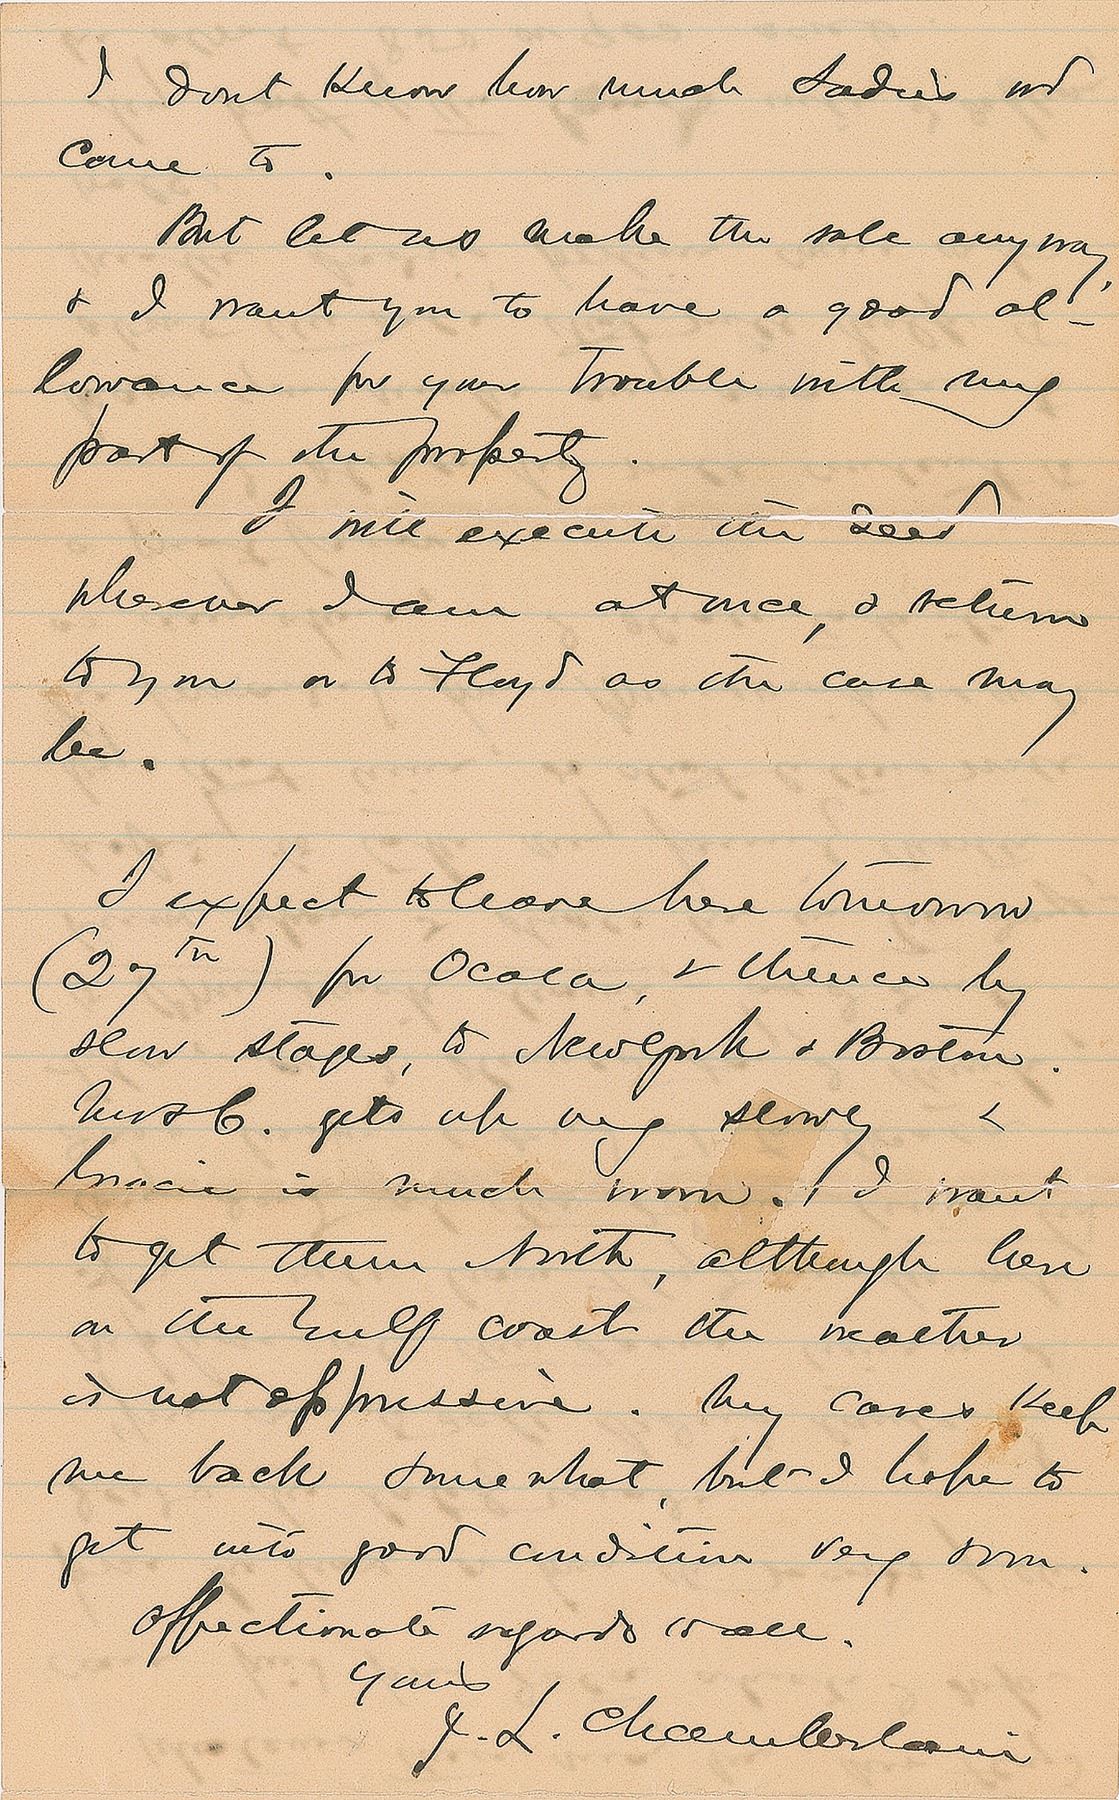 I dont Know how much Sadie's wd
come to.
But let us make the sale anyway,
& I want you to have a good al-
lowance for your trouble with my
part of the property.
I will execute the deed
wherever I am at once, & return
to you or to Floyd as the case may
be.
I expect to leave here tomorrow
(27th) for Ocala, & thence by
slow stages, to New York & Boston.
Mrs C. gets up very slowly &
Gracie is much worn. I want
to get them North, although here
on the Gulf coast the weather
is not oppressive. My cares Keep
me back somewhat, but I hope to
get into good condition very soon.
Affectionate regards to all.
Yours
J. L. Chamberlain